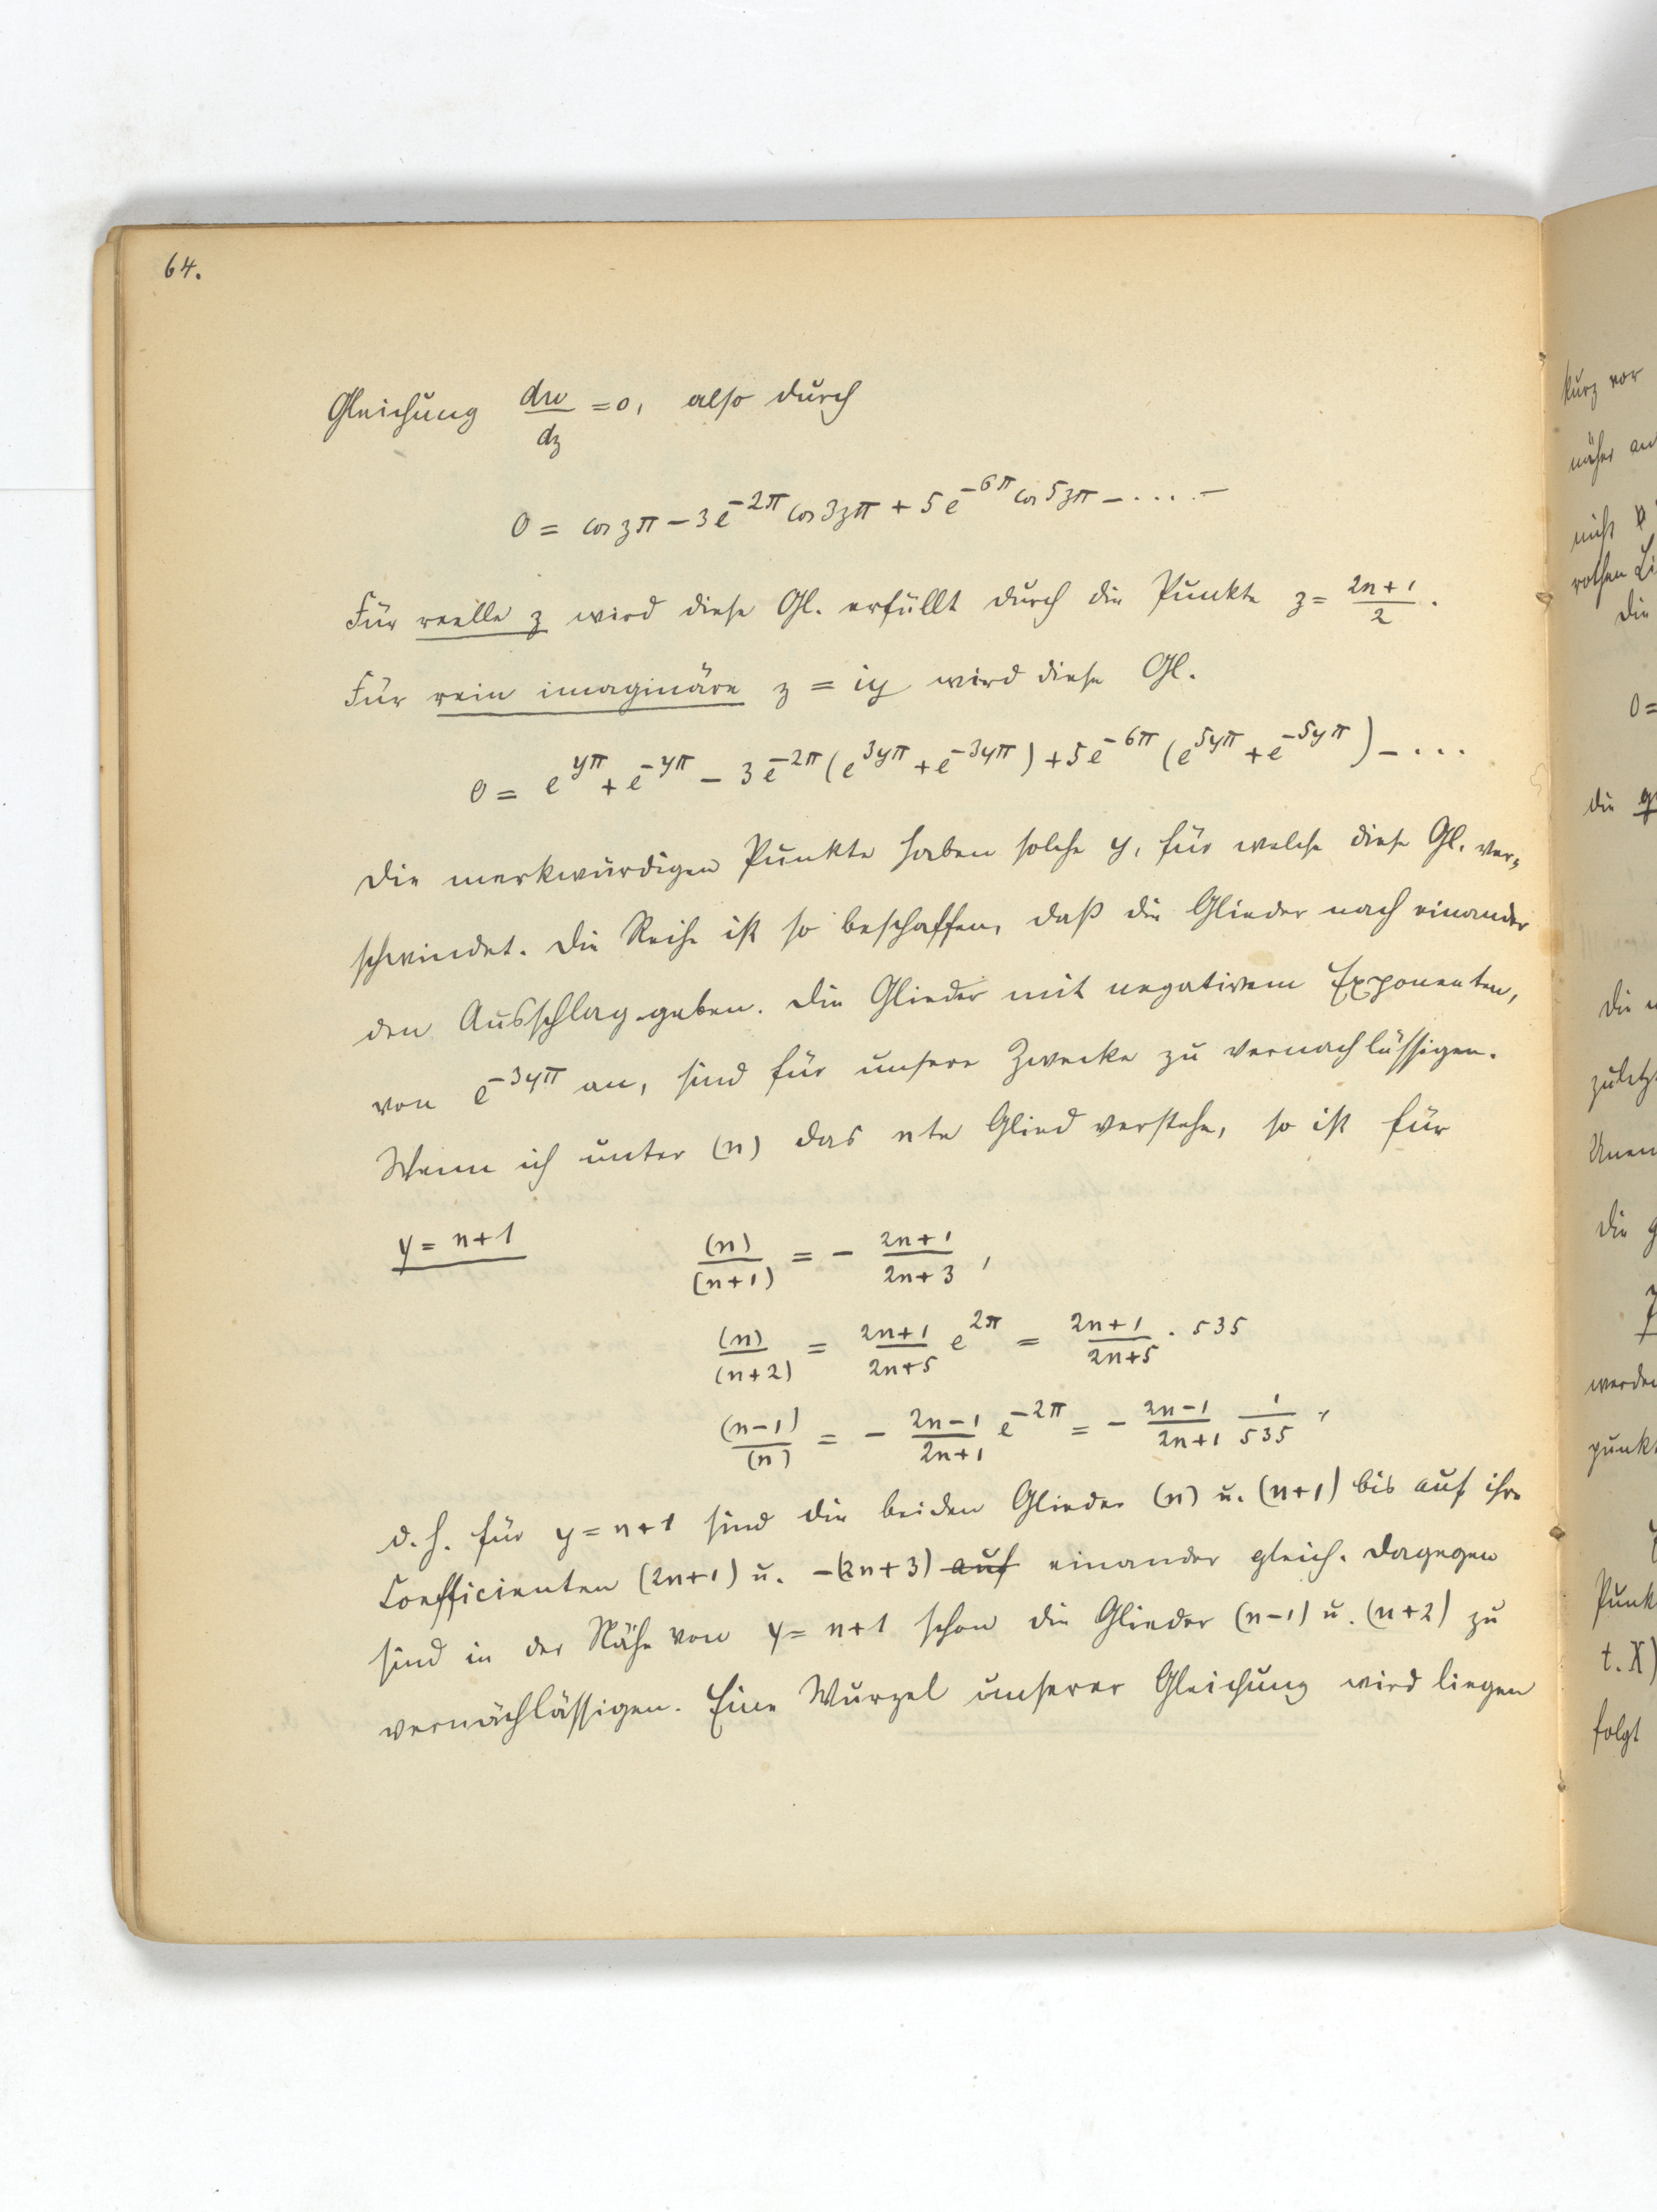 64.
Gleichung dw/dz = 0, also durch
0 = cos zπ − 3 e^{−2π} cos 3zπ + 5 e^{−6π} cos 5zπ − .... −
Für reelle z wird diese Gl. erfüllt durch die Punkte z = (2n+1)/2.
Für rein imaginäre z = iy wird diese Gl.
0 = e^{yπ} + e^{−yπ} − 3 e^{−2π} (e^{3yπ} + e^{−3yπ}) + 5 e^{−6π} (e^{5yπ} + e^{−5yπ}) − ...
Die merkwürdigen Punkte haben solche y, für welche diese Gl. ver-
schwindet. Die Reihe ist so beschaffen, daß die Glieder nach einander
den Ausschlag geben. Die Glieder mit negativem Exponenten,
von e^{−3yπ} an, sind für unsere Zwecke zu vernachlässigen.
Wenn ich unter (n) das nte Glied verstehe, so ist für
y = n+1 (n)/(n+1) = − (2n+1)/(2n+3),
(n)/(n+2) = (2n+1)/(2n+5) e^{2π} = (2n+1)/(2n+5) · 535
(n−1)/(n) = − (2n−1)/(2n+1) e^{−2π} = − (2n−1)/(2n+1) 1/535,
d. h. für y = n+1 sind die beiden Glieder (n) u. (n+1) bis auf ihre
Coefficienten (2n+1) u. −(2n+3) auf einander gleich. Dagegen
sind in der Nähe von y = n+1 schon die Glieder (n−1) u. (n+2) zu
vernachlässigen. Eine Wurzel unserer Gleichung wird liegen
kurz vor
näher an
nicht
rothen Li
Die
0 =
die
Die
zuletzt
Unen
die g
werden
punkt
Punk
t. X)
folgt